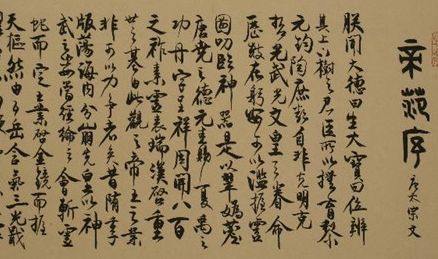 帝范序
唐太宗文
朕聞大德曰生大寶曰位辨
其上下樹之君臣所以撫育黎
元鈞陶庶類自非克明克
哲允武允文皇天眷命
歷數在躬安可以濫握靈
圖叨臨神器是以翠媯薦
唐堯之德元圭賜夏禹之
功丹字呈祥周開八百
之祚素靈表瑞漢啟重
世之基由此觀之帝王之業
非可以力爭者矣昔隋季
版蕩海內分崩先皇以神
武之姿當經綸之會斬靈
蛇而定王業啟金鏡而握
天樞然由五岳含氣三光戢